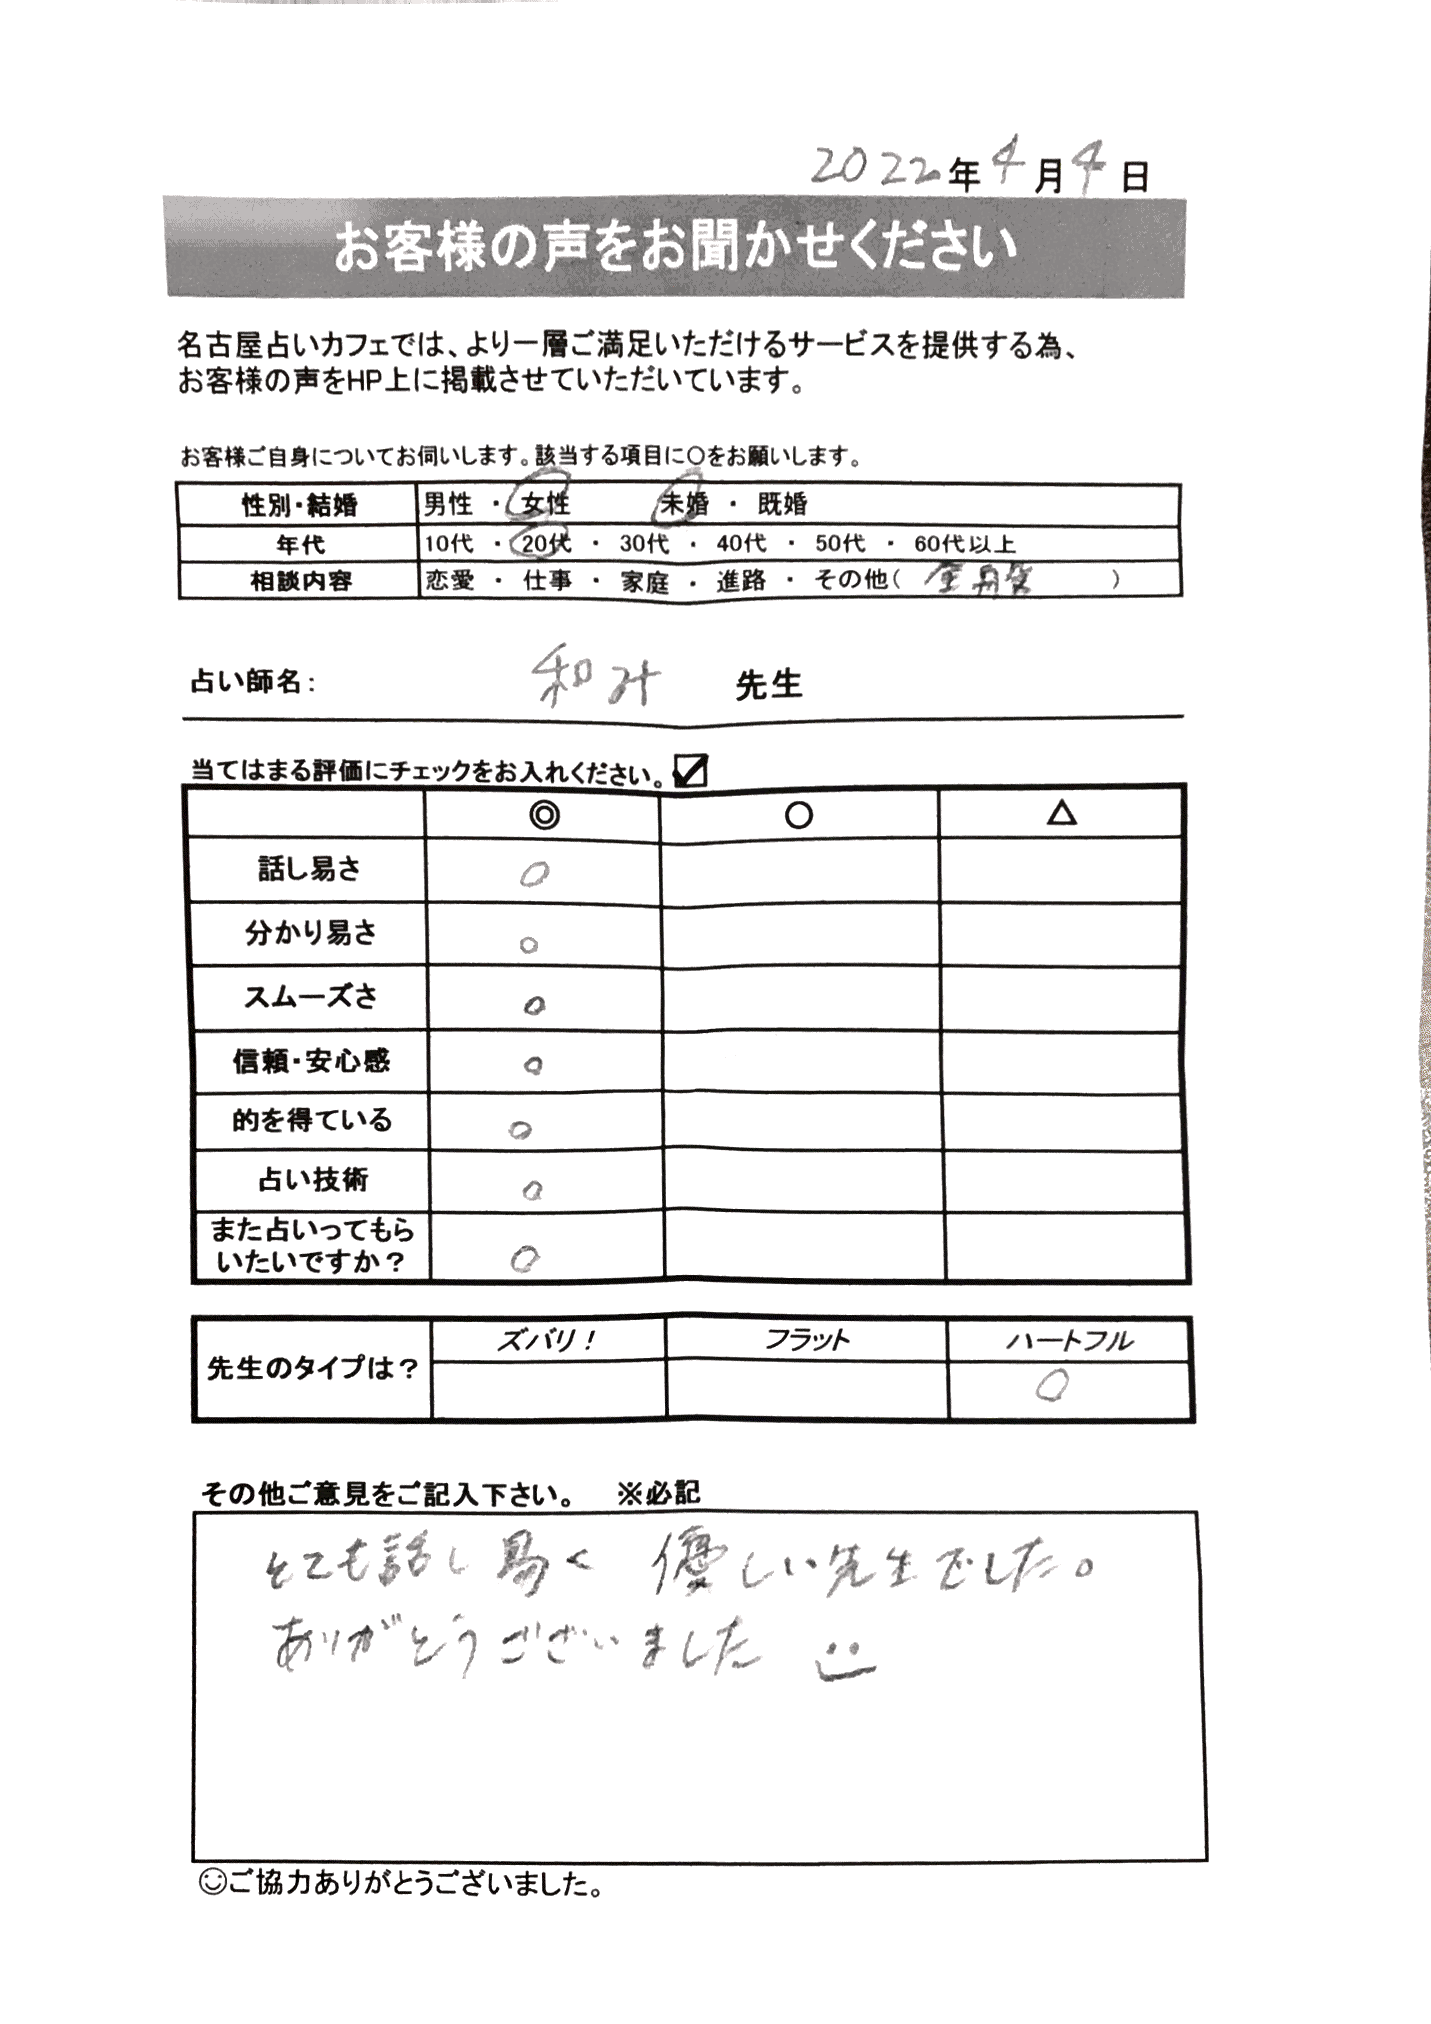 2022年4月4日
お客様の声をお聞かせください
名古屋占いカフェでは、より一層ご満足いただけるサービスを提供する為、
お客様の声をHP上に掲載させていただいています。
お客様ご自身についてお伺いします。該当する項目に○をお願いします。
性別・結婚 男性 ・ 女性 未婚 ・ 既婚
年代 10代 ・ 20代 ・ 30代 ・ 40代 ・ 50代 ・ 60代以上
相談内容 恋愛 ・ 仕事 ・ 家庭 ・ 進路 ・ その他( )
占い師名: 和叶 先生
当てはまる評価にチェックをお入れください。☑
◎ ○ △
話し易さ ○
分かり易さ ○
スムーズさ ○
信頼・安心感 ○
的を得ている ○
占い技術 ○
また占いってもら
いたいですか? ○
ズバリ! フラット ハートフル
先生のタイプは? ○
その他ご意見をご記入下さい。 ※必記
とても話し易く 優しい先生でした。
ありがとうございました
☺ご協力ありがとうございました。